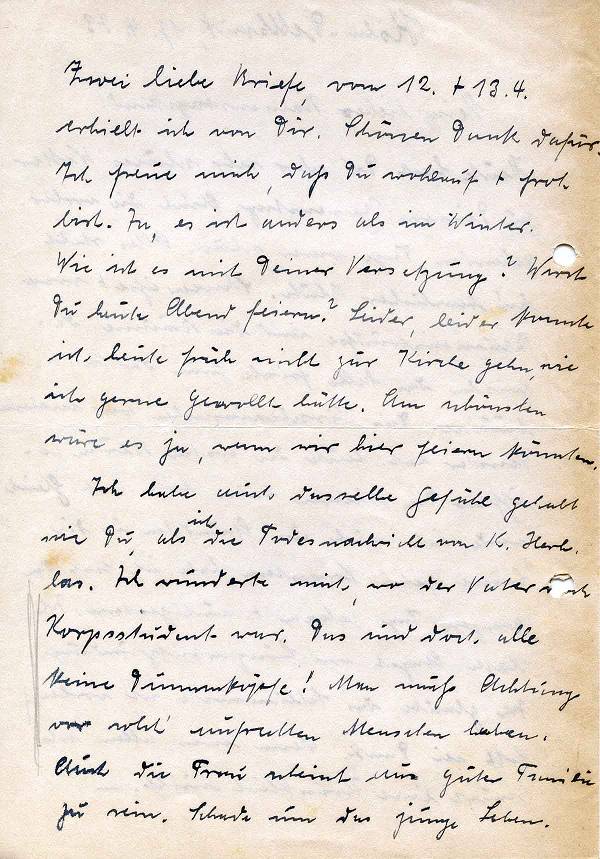 Zwei liebe Briefe, vom 12. + 13.4.
erhielt ich von Dir. Schönen Dank dafür.
Ich freue mich, daß Du wohlauf + froh
bist. Ja, es ist anders als im Winter.
Wie ist es mit Deiner Versetzung? Wirst
Du heute Abend feiern? Leider, leider konnte
ich heute früh nicht zur Kirche gehn, wie
ich gerne gewollt hätte. Am schönsten
wäre es ja, wenn wir hier feiern könnten.
Ich habe auch dasselbe Gefühl gehabt
wie Du, als ich die Todesnachricht von K. Herb.
las. Ich wunderte mich, wo der Vater doch
Korpsstudent war. Das sind doch alle
keine Dummköpfe! Man muß Achtung
vor solch' aufrechten Menschen haben.
Auch die Frau scheint aus guter Familie
zu sein. Schade um das junge Leben.